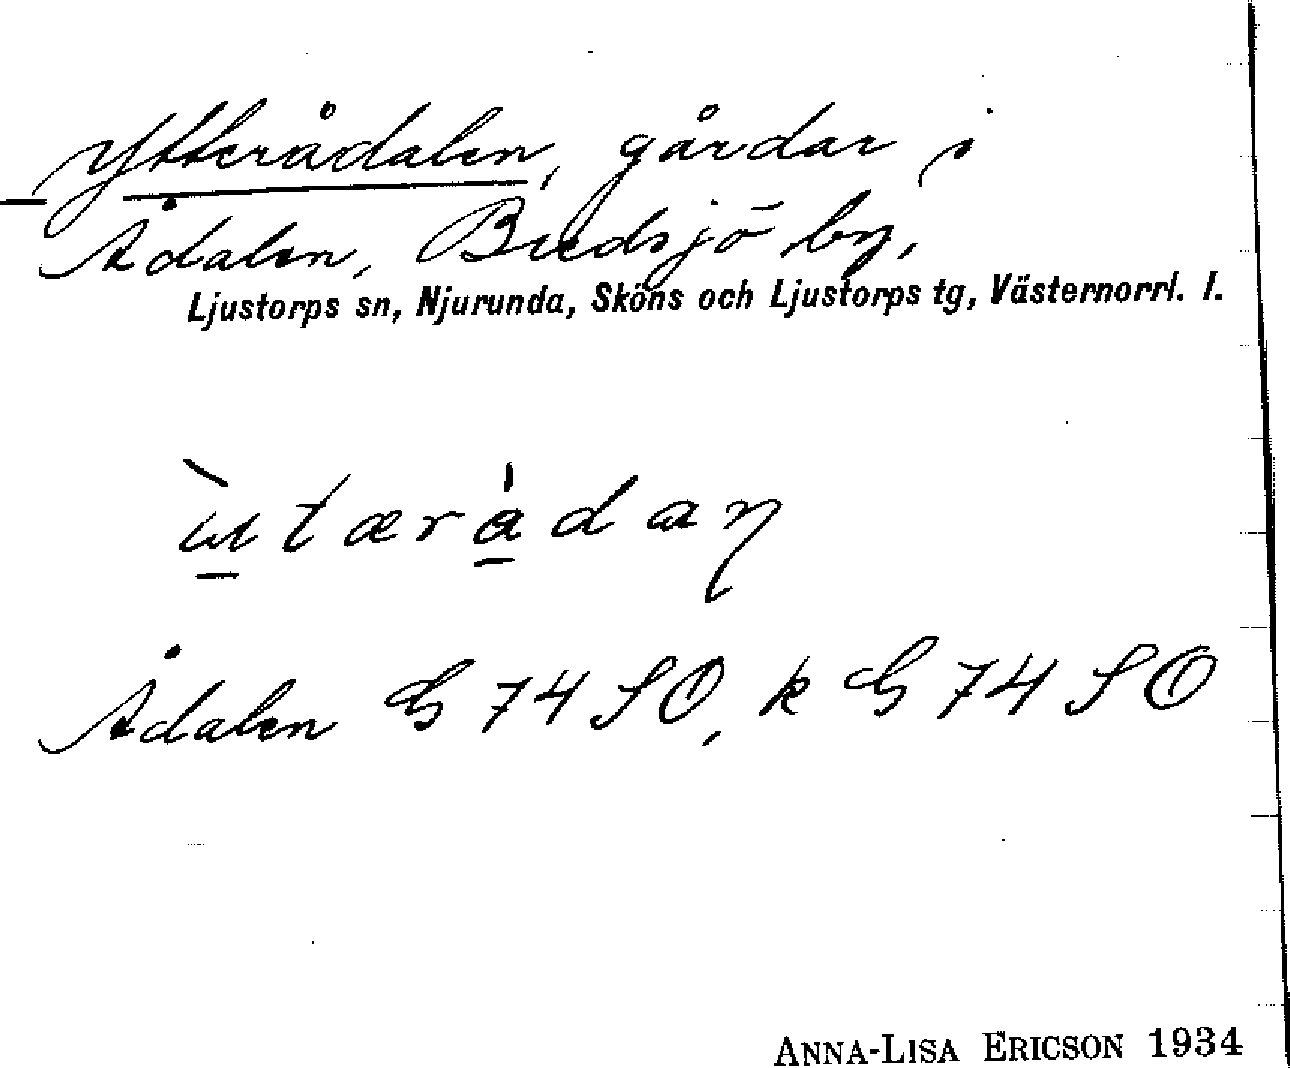 Ytterådalen, gårdar i
Ådalen, Bredsjö by,
Ljustorps sn, Njurunda, Sköns och Ljustorps tg, Västernorrl. l.
Ådalen G 74 SO, k G 74 SO
ANNA-LISA ERICSON 1934